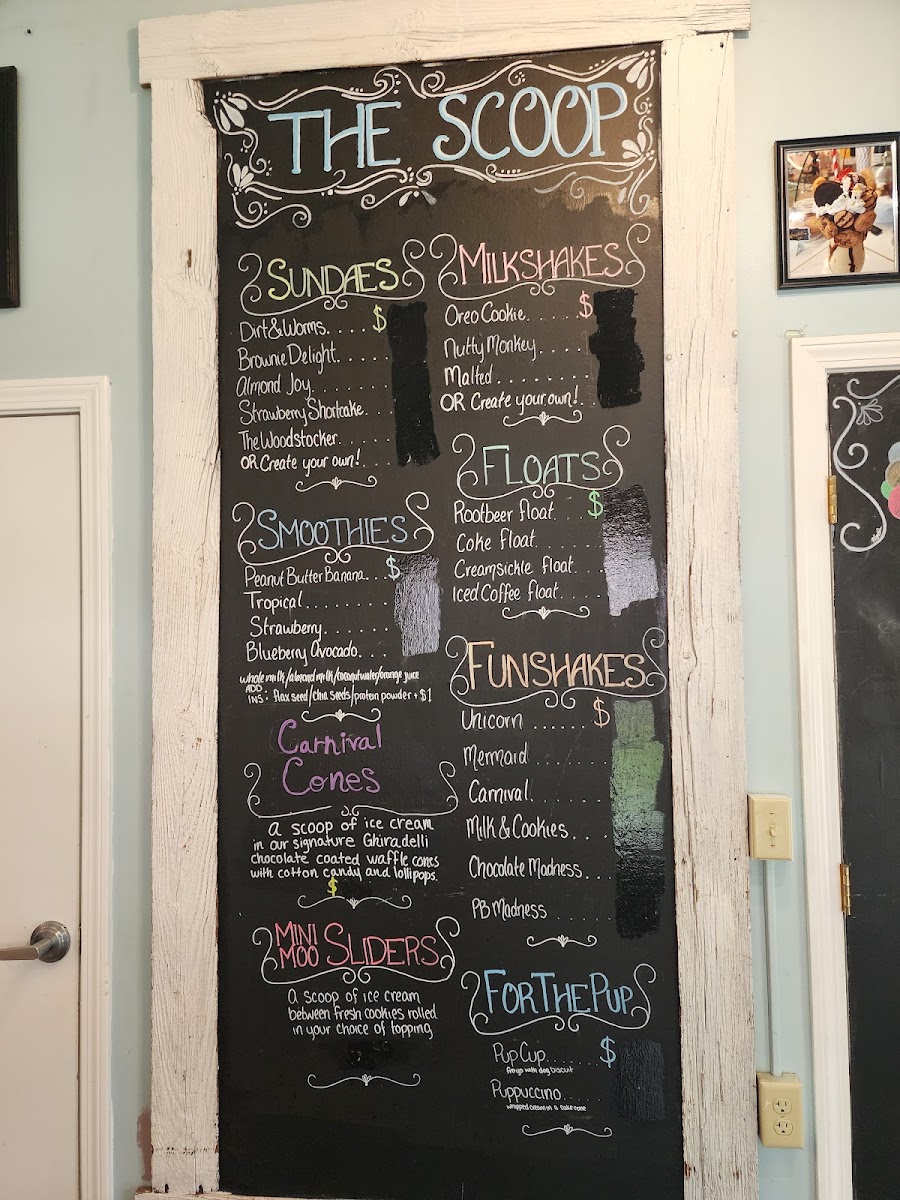 THE SCOOP
SUNDAES
$
Dirt & Worms.....
Brownie Delight......
Almond Joy........
Strawberry Shortcake...
The Woodstocker......
OR Create your own!....
MILKSHAKES
$
Oreo Cookie.....
Nutty Monkey.....
Malted.........
OR Create your own!..
FLOATS
Rootbeer float....$
Coke float.......
Creamsickle float...
Iced Coffee float....
SMOOTHIES
Peanut Butter Banana...$
Tropical.........
Strawberry.......
Blueberry Avocado....
whole milk/almond milk/coconut water/orange juice
ADD
INS: flax seed/chia seeds/protein powder + $1
FUNSHAKES
Unicorn ......$
Mermaid .......
Carnival........
Milk & Cookies....
Chocolate Madness...
PB Madness ......
Carnival
Cones
a scoop of ice cream
in our signature Ghiradelli
chocolate coated waffle cones
with cotton candy and lollipops.
$
MINI
MOO SLIDERS
a scoop of ice cream
between fresh cookies rolled
in your choice of topping
FOR THE PUP
Pup Cup......$
froyo with dog biscuit
Puppuccino....
whipped cream in a cake cone